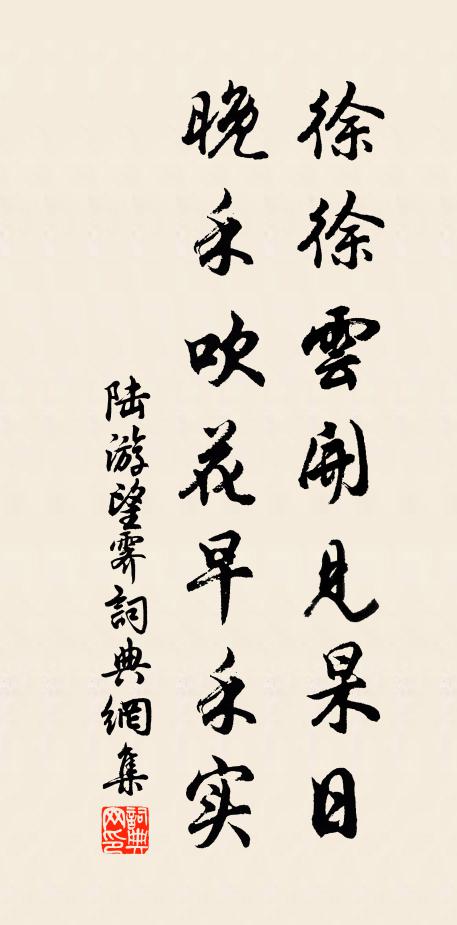 徐徐雲開見杲日
晚禾吹花早禾实
陆游望霽詞典網集
詞典网印